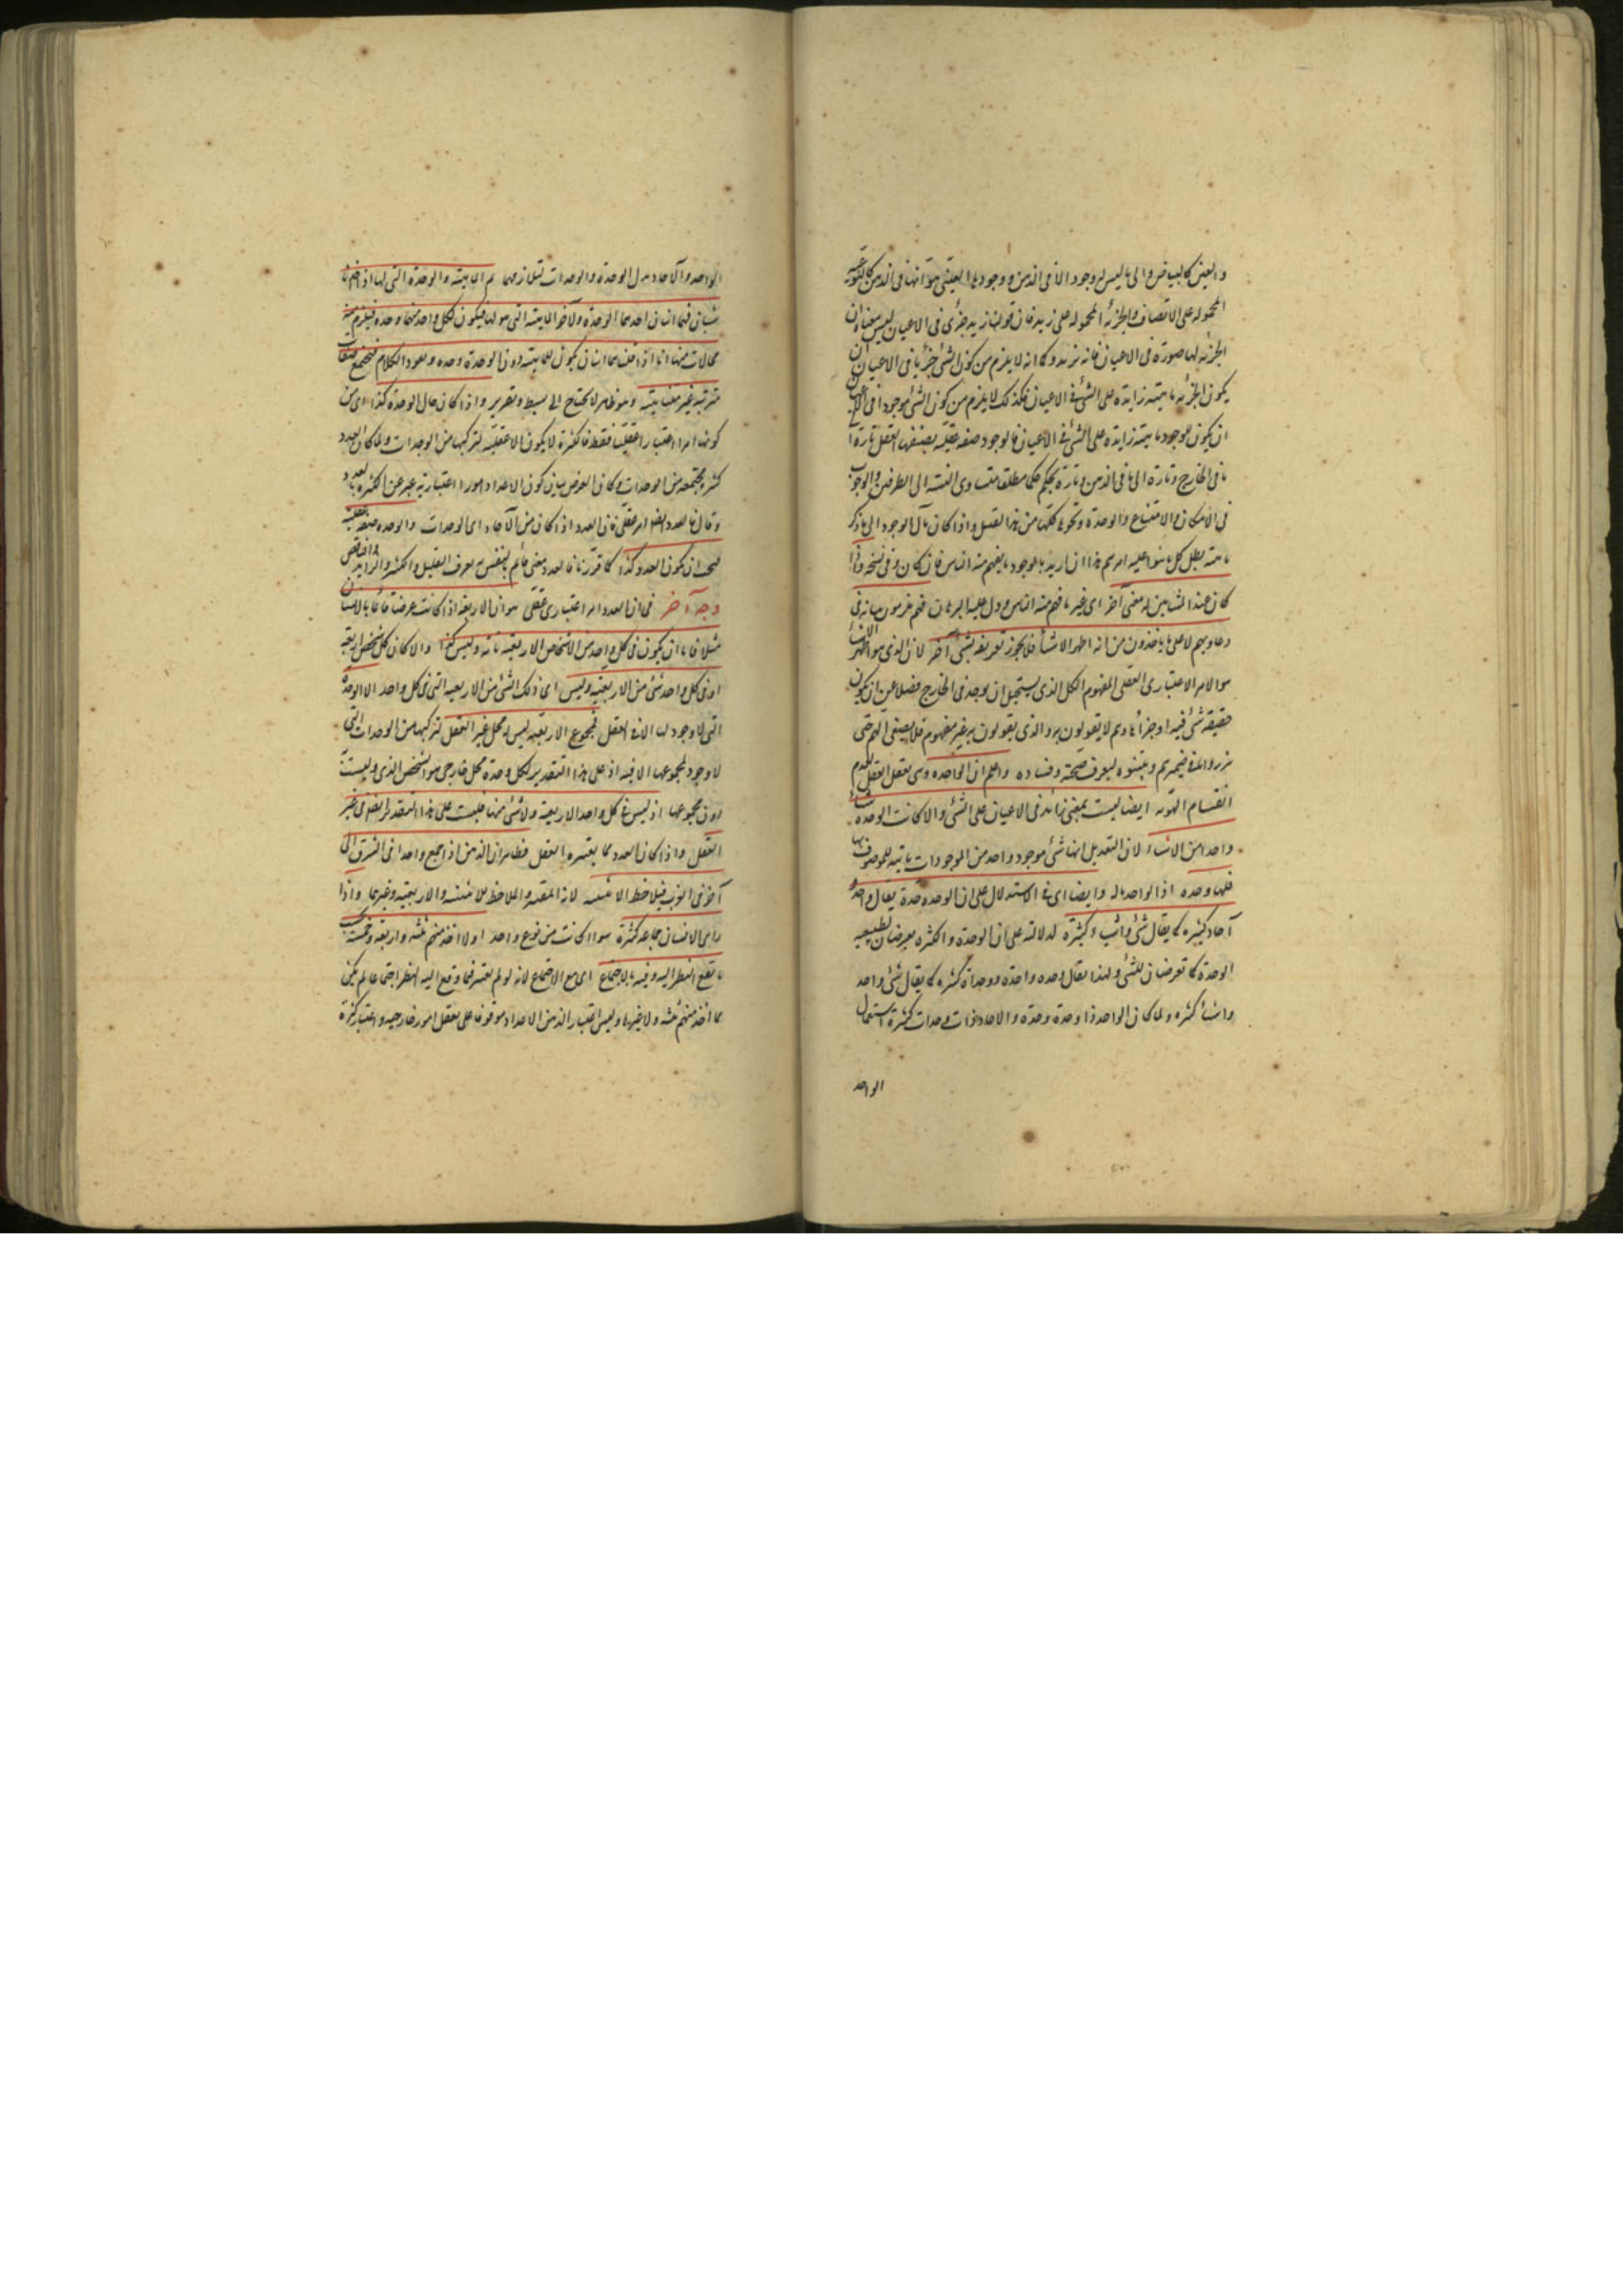 والعين كالبياض والى ما ليس له وجود الا فى الذهن ووجودها العينى هو انها فى الذهن كالنوعية
المحمولة على الانسان والجزئية المحمولة على زيد فان قولنا زيد جزئى فى الاعيان ليس معناه ان
الجزئية لها صورة فى الاعيان قائمة بزيد وكما انه لا يلزم من كون الشئ جزئيا فى الاعيان ان
يكون للجزئية ماهية زايدة على الشئ فى الاعيان فكذلك لا يلزم من كون الشئ موجودا فى الاعيان
ان يكون للوجود ماهية زايدة على الشئ فى الاعيان فالوجود صفة عقلية يضيفها العقل تارة الى
ما فى الخارج وتارة الى ما فى الذهن وتارة يحكم حكما مطلقا متساوى النسبة الى الطرفين والوجوب
فى الامكان والامتناع والوحدة ونحوها كلها من هذا القبيل واذا كان مآل الوجود الى ما ذكر
ما بنته بطل كل ما بنوا عليه امرهم هذا ان اريد بالوجود ما يفهم منه الناس فان كان وفى نسخة وان
كان عند المشائين له معنى آخر اى غير ما فهم منه الناس ودل عليه البرهان فهم ملزمون ببيانه فى
دعاويهم لا على ما ياخذون من انه اظهر الاشياء فلا يجوز تعريفه بشئ آخر لان الذى هو اظهر الاشياء
هو الامر الاعتبارى العقلى المفهوم للكل الذى يستحيل ان يوجد فى الخارج فضلا عن ان يكون
حقيقة شئ فيه او جزئا وهم لا يقولون به والذى يقولون به غير مفهوم فلا يصغى اليهم حتى
يبرزوا ما فى ضميرهم ويبينوه ليعرف صحته وفساده واعلم ان الواحدة وهى تعقل العقل لعدم
انقسام الهوية ايضا ليست بمعنى زائد فى الاعيان على الشئ والا كانت الوحدة شيئا
واحدا من الاشياء لان التقدير انها شئ موجود واحد من الموجودات مباينة للموصوف بها
فلها وحدة اذ الواحد ماله وايضا اى فى الاستدلال على ان للوحدة وحدة يقال واحد و
آحاد كثيرة كما يقال شئ واشياء كثيرة لدلالته على ان الوحدة والكثرة يعرضان لطبيعة
الوحدة كما تعرضان للشئ ولهذا يقال وحدة واحدة ووحدات كثيرة كما يقال شئ واحد
واشياء كثيرة ولما كان الواحد ذا وحدة وحدة والاحاد ذوات وحدات كثيرة استعمال
الواحد
الواحد والآحاد بدل الوحدة والوحدات لتلازمهما ثم الماهية والوحدة التى لها اذا اخذتا
شيئان فهما اثنان احدهما الوحدة والآخر الماهية التى هو لها فيكون لكل واحد منهما وحدة فيلزم منه
محالات منها انا اذا قلنا هما اثنان يكون للماهية دون الوحدة وحدة ويعود الكلام فيجتمع صفات
مترتبة غير متناهية وهو ظاهر لا يحتاج الى بسط وتقرير واذا كان حال الوحدة كذا اى من
كونها امرا اعتباريا عقليا فقط فالكثرة لا يكون الا عقلية لتركبها من الوحدات ولما كان العدد
كثرة مجتمعة من الوحدات وكان الغرض بيان كون الاعداد امورا اعتبارية عبر عن الكثرة بالعدد
وقال فالعدد ايضا امر عقلى فان العدد اذا كان من الآحاد اى الوحدات والوحدة صفة عقلية
فيجب ان يكون العدد كذا كما قررنا فالعدد معنى قائم بالنفس به يعرف القليل والكثير والزايد والناقص
وجه آخر فى ان العدد امر اعتبارى عقلى هو ان الاربعة اذا كانت عرضا قائما بالانسان
مثلا فاما ان يكون فى كل واحد من الاشخاص الاربعة تامة وليس كذا والا كان كل شخص اربعة
او فى كل واحد شئ من الاربعة وليس اى ذلك الشئ من الاربعة التى فى كل واحد الا الوحدة
التى لا وجود لها الا فى العقل فمجموع الاربعة ليس له محل غير العقل لتركبها من الوحدات التى
لا وجود لمجموعها الا فيه اذ على هذا التقدير لكل وحدة محل خارجى هو الشخص الذى وليست
دون مجموعها اذ ليس فى كل واحد الاربعة ولا شئ منها فليست على هذا التقدير ايضا فى غير
العقل واذا كان العدد مما يعتبره العقل فظاهر ان الذهن اذا جمع واحدا فى الشرق الى
آخر فى الغرب فيلاحظ الاثنينية لانه المعتبر والملاحظ للاثنينية والاربعية وغيرها واذا
راى الانسان جماعة كثيرة سواء كانت من نوع واحد او لا اخذ منهم ثلثة واربعة وخمسة بحسب
ما يقع النظر اليه وفيه بالاجتماع اى مع الاجتماع لانه لو لم يعتبر فيما وقع اليه النظر اجتماعا لم يكن
ما اخذ منهم ثلثة ولا غيرها وليس اعتبار الذهن الاعداد موقوفا على تعقل امور خارجية واعتبار كثرة